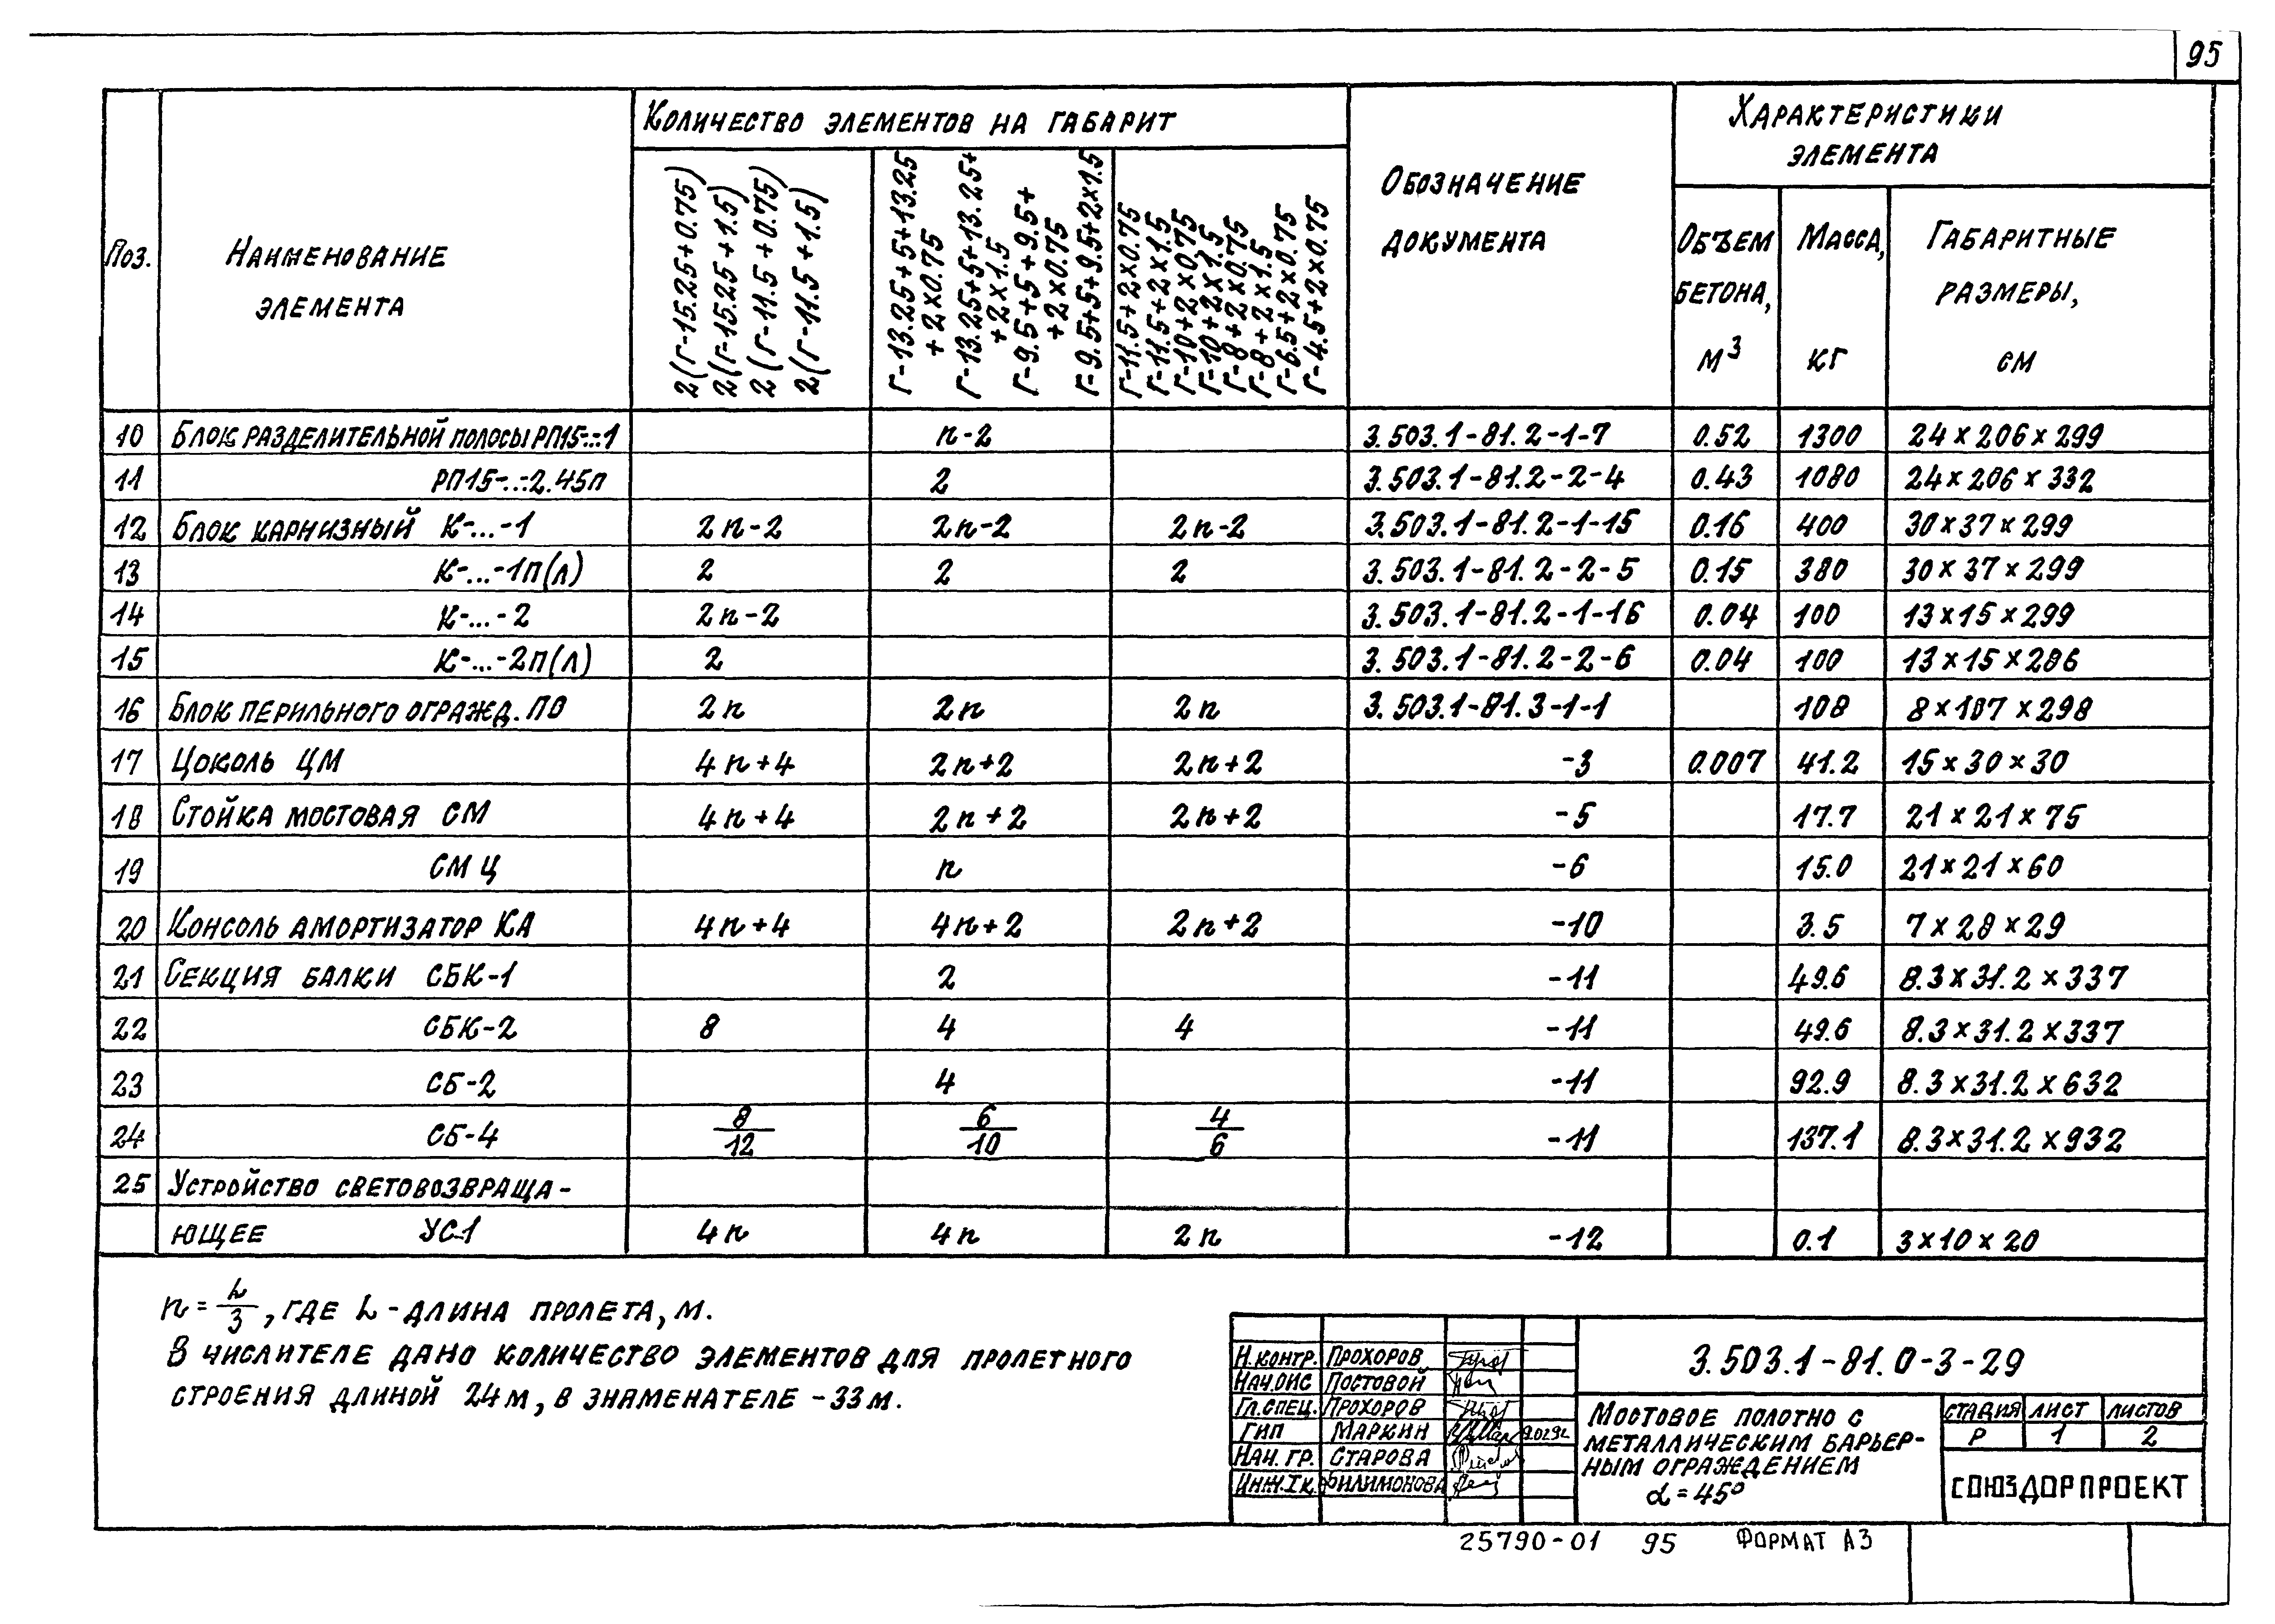 95
Поз.
Наименование
элемента
Количество элементов на габарит
2(Г-15.25+0.75)
2(Г-15.25+1.5)
2(Г-11.5+0.75)
2(Г-11.5+1.5)
Г-13.25+5+13.25
+2×0.75
Г-13.25+5+13.25+
+2×1.5
Г-9.5+5+9.5+
+2×0.75
Г-9.5+5+9.5+2×1.5
Г-11.5+2×0.75
Г-11.5+2×1.5
Г-10+2×0.75
Г-10+2×1.5
Г-8+2×0.75
Г-8+2×1.5
Г-6.5+2×0.75
Г-4.5+2×0.75
Обозначение
документа
Характеристики
элемента
Объем
бетона,
м³
Масса,
кг
Габаритные
размеры,
см
10 Блок разделительной полосы РП15-..-1 n-2 3.503.1-81.2-1-7 0.52 1300 24×206×299
11 РП15-..-2.45п 2 3.503.1-81.2-2-4 0.43 1080 24×206×332
12 Блок карнизный К-...-1 2n-2 2n-2 2n-2 3.503.1-81.2-1-15 0.16 400 30×37×299
13 К-...-1п(л) 2 2 2 3.503.1-81.2-2-5 0.15 380 30×37×299
14 К-...-2 2n-2 3.503.1-81.2-1-16 0.04 100 13×15×299
15 К-...-2п(л) 2 3.503.1-81.2-2-6 0.04 100 13×15×286
16 Блок перильного огражд. ПО 2n 2n 2n 3.503.1-81.3-1-1 108 8×107×298
17 Цоколь ЦМ 4n+4 2n+2 2n+2 -3 0.007 41.2 15×30×30
18 Стойка мостовая СМ 4n+4 2n+2 2n+2 -5 17.7 21×21×75
19 СМЦ n -6 15.0 21×21×60
20 Консоль амортизатор КА 4n+4 4n+2 2n+2 -10 3.5 7×28×29
21 Секция балки СБК-1 2 -11 49.6 8.3×31.2×337
22 СБК-2 8 4 4 -11 49.6 8.3×31.2×337
23 СБ-2 4 -11 92.9 8.3×31.2×632
24 СБ-4 8/12 6/10 4/6 -11 137.1 8.3×31.2×932
25 Устройство световозвраща-
ющее УС1 4n 4n 2n -12 0.1 3×10×20
n=L/3, где L-длина пролета, м.
В числителе дано количество элементов для пролетного
строения длиной 24м, в знаменателе -33м.
Н.контр. Прохоров
Нач.ОИС Постовой
Гл.спец. Прохоров
ГИП Маркин
Нач. гр. Старова
Инж.Iк. Филимонова
3.503.1-81.0-3-29
Мостовое полотно с
металлическим барьер-
ным ограждением
α=45°
стадия лист листов
Р 1 2
Союздорпроект
25790-01 95 Формат А3